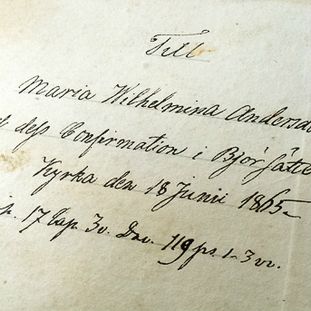 Till
Maria Wilhelmina Anders
dess Confirmation i Björsätte
Kyrka den 18 Junii 1865
p. 17 Cap. 3 v. Dav. 119 ps. 1-3 vv.